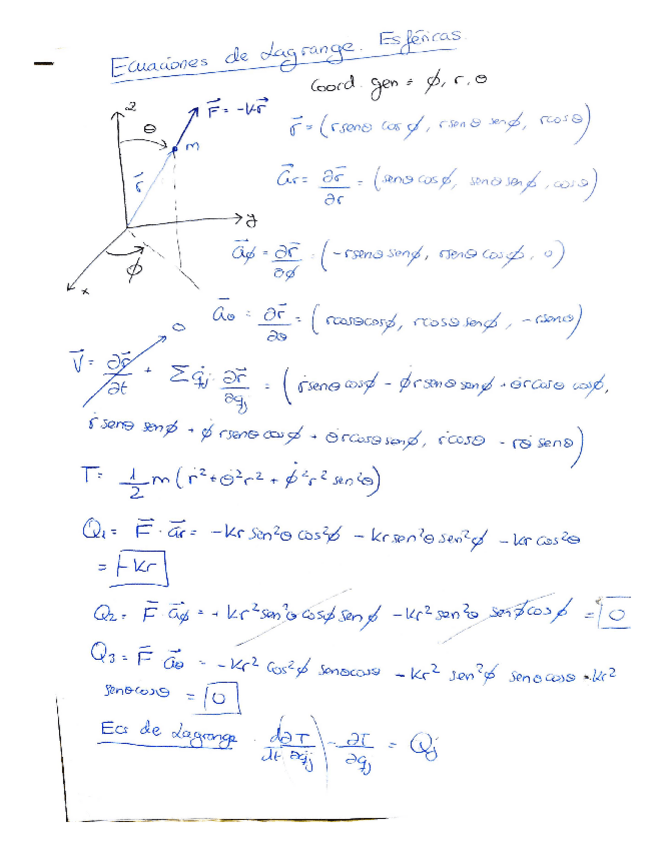 Ecuaciones de Lagrange. Esféricas.
Coord. gen = φ, r, θ
z
θ
F⃗ = -Kr⃗
m
r⃗
y
x
φ
r⃗ = (r senθ cosφ, r senθ senφ, r cosθ)
a⃗r = ∂r⃗/∂r = (senθ cosφ, senθ senφ, cosθ)
a⃗φ = ∂r⃗/∂φ = (-r senθ senφ, r senθ cosφ, 0)
a⃗θ = ∂r⃗/∂θ = (r cosθ cosφ, r cosθ senφ, -r senθ)
V⃗ = ∂r⃗/∂t → 0 + Σ q̇j ∂r⃗/∂qj = (ṙ senθ cosφ - φ̇ r senθ senφ + θ̇ r cosθ cosφ,
ṙ senθ senφ + φ̇ r senθ cosφ + θ̇ r cosθ senφ, ṙ cosθ - rθ̇ senθ)
T = 1/2 m (ṙ² + θ̇² r² + φ̇² r² sen²θ)
Q₁ = F⃗ · a⃗r = -Kr sen²θ cos²φ - Kr sen²θ sen²φ - Kr cos²θ
= -Kr
Q₂ = F⃗ · a⃗φ = + Kr² sen²θ cosφ senφ - Kr² sen²θ senφ cosφ = 0
Q₃ = F⃗ a⃗θ = -Kr² cos²φ senθ cosθ - Kr² sen²φ senθ cosθ + Kr²
senθ cosθ = 0
Ecs de Lagrange. d/dt (∂T/∂q̇j) - ∂T/∂qj = Qj